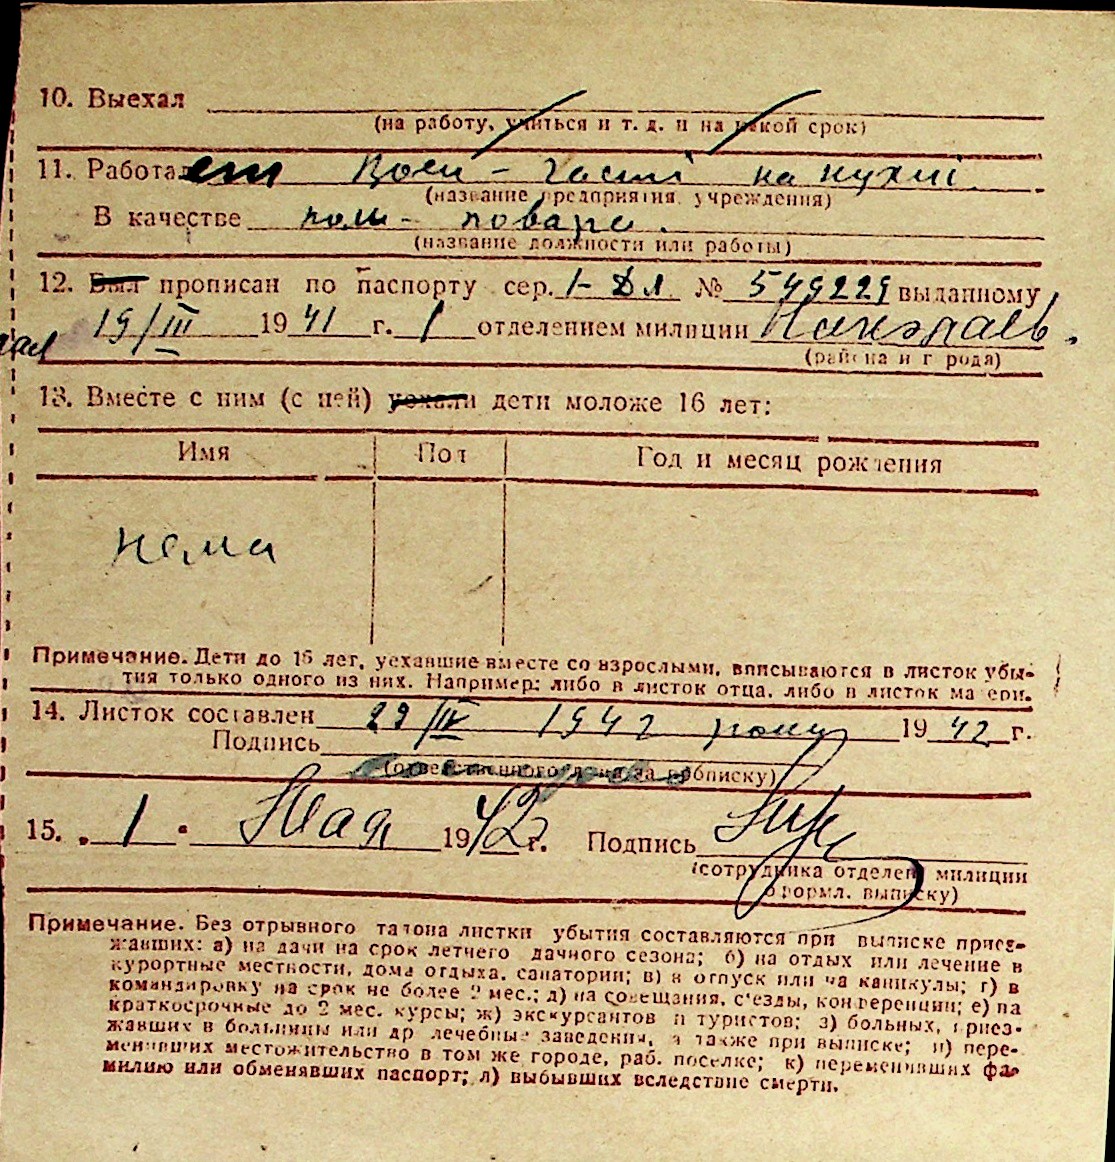 10. Выехал
(на работу, учиться и т. д. и на какой срок)
11. Работает Воен - часті на кухні
(название предприятия, учреждения)
В качестве пом - повара.
(название должности или работы)
12. Был прописан по паспорту сер. I-ДЛ № 549229 выданному
19/III 1941 г. 1 отделением милиции
(района и города)
13. Вместе с ним (с ней) уехали дети моложе 16 лет:
Имя Пол Год и месяц рождения
нема
Примечание. Дети до 16 лет, уехавшие вместе со взрослыми, вписываются в листок убы-
тия только одного из них. Например: либо в листок отца, либо в листок матери.
14. Листок составлен 29/IV 1942 року 1942 г.
Подпись
(ответственного лица за прописку)
15. „ 1 " Мая 1942 г. Подпись
(сотрудника отделен. милиции
оформл. выписку)
Примечание. Без отрывного талона листки убытия составляются при выписке приез-
жавших: а) на дачи на срок летнего дачного сезона; б) на отдых или лечение в
курортные местности, дома отдыха, санатории; в) в отпуск или на каникулы; г) в
командировку на срок не более 2 мес.; д) на совещания, с'езды, конференции; е) на
краткосрочные до 2 мес. курсы; ж) экскурсантов и туристов; з) больных, приез-
жавших в больницы или др лечебные заведения, а также при выписке; и) пере-
менивших местожительство в том же городе, раб. поселке; к) переменивших фа-
милию или обменявших паспорт; л) выбывших вследствие смерти.